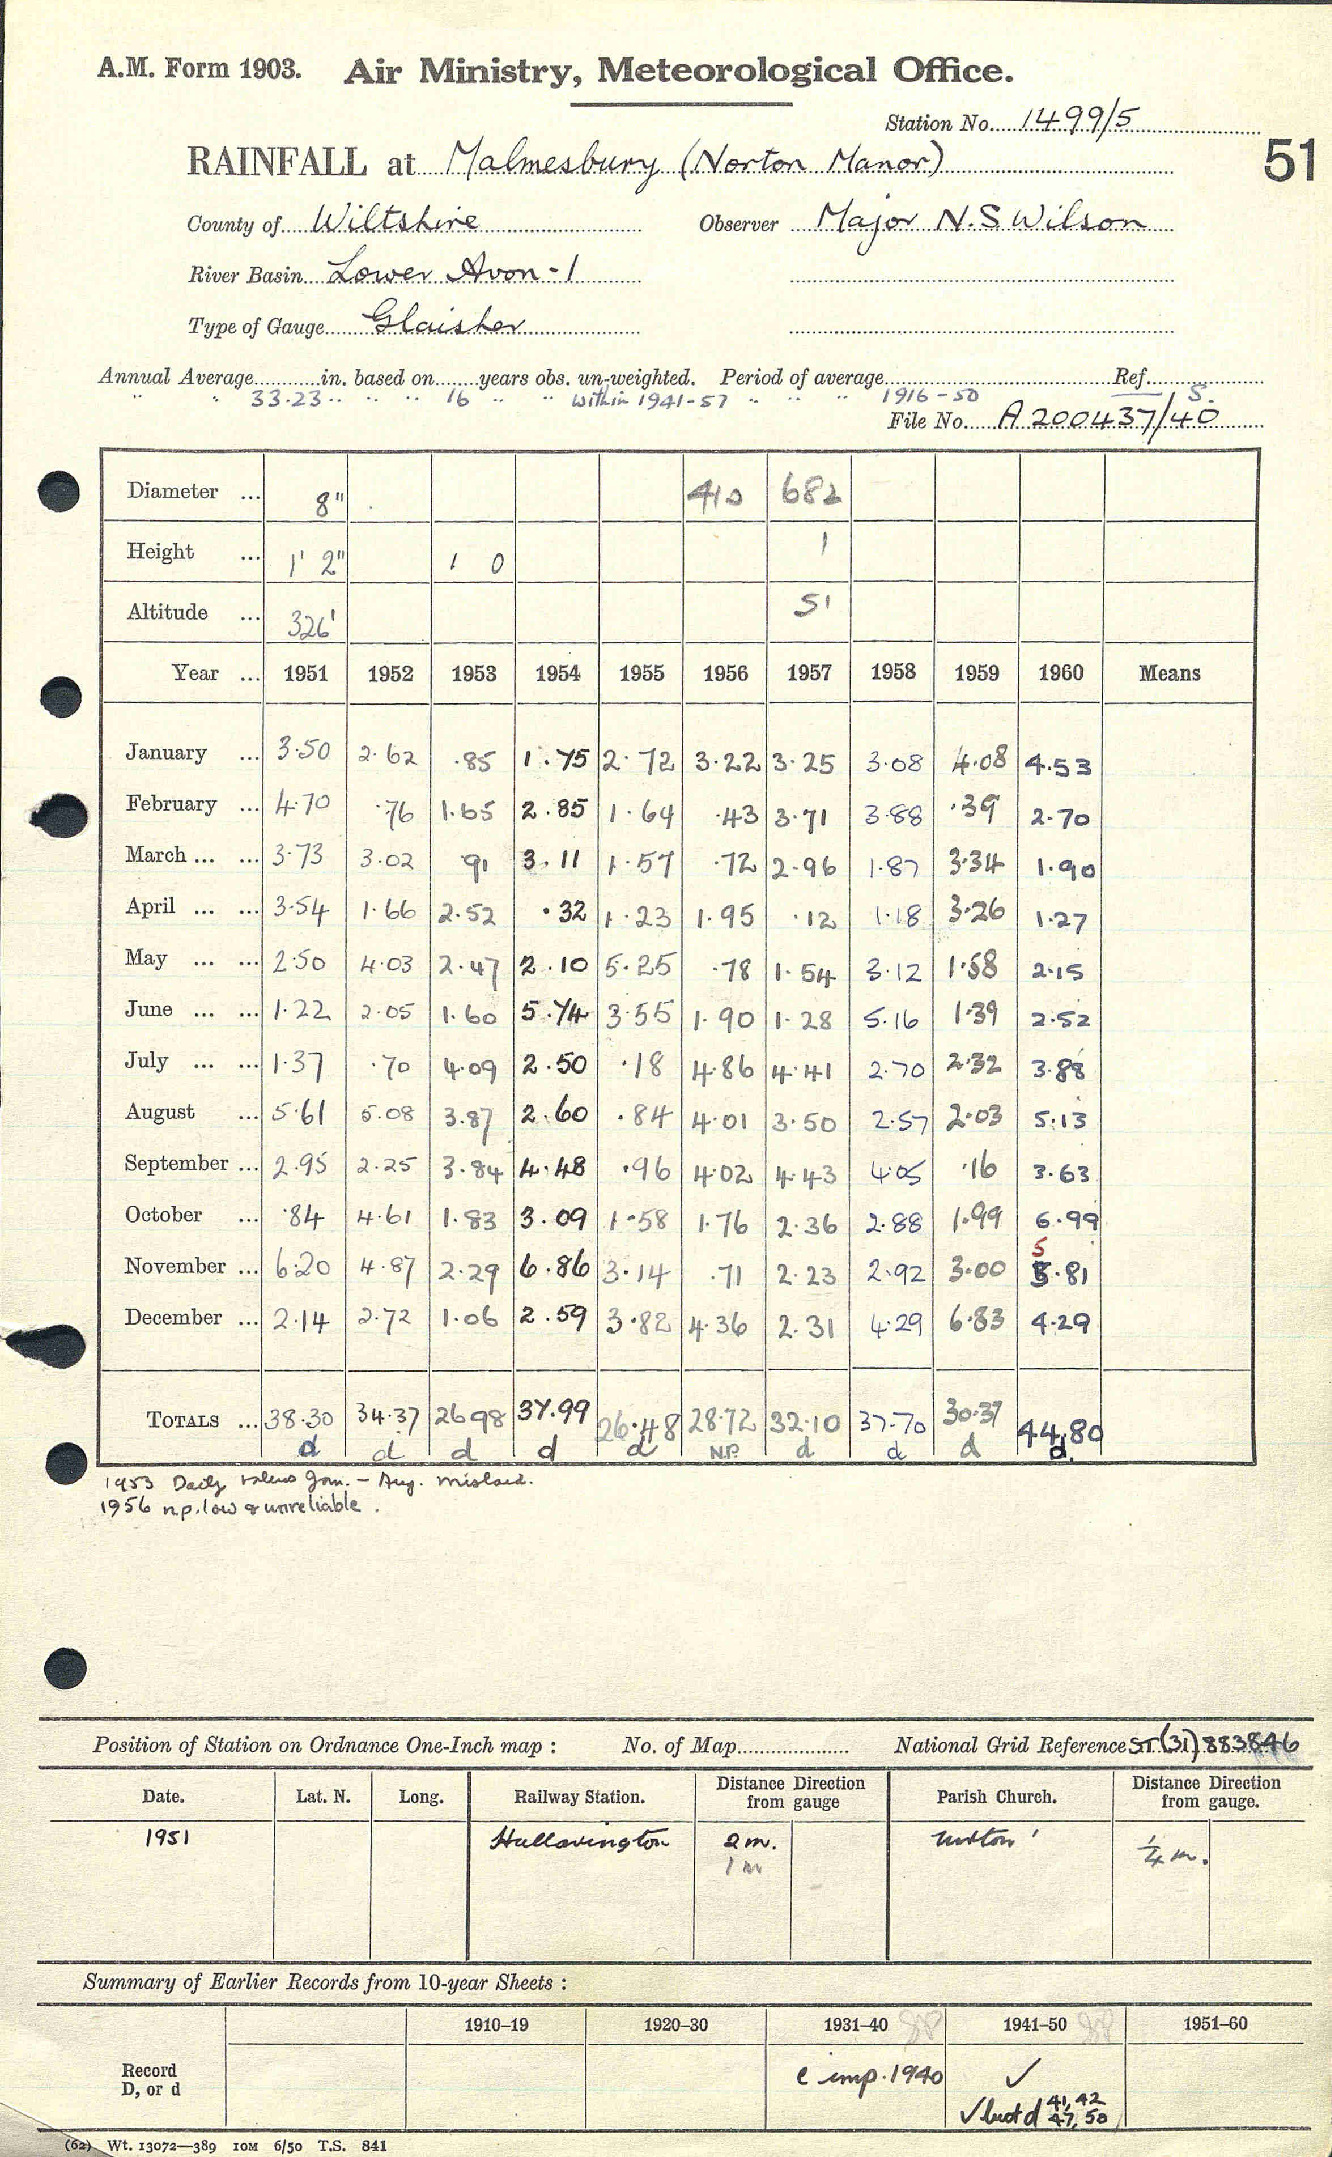 A.M. Form 1903. Air Ministry, Meteorological Office.
Station No. 1499/5
51
RAINFALL at Malmesbury (Norton Manor)
County of Wiltshire Observer Major N.S Wilson
River Basin Lower Avon - 1
Type of Gauge Glaisher
Annual Average in. based on years obs. un-weighted. Period of average Ref.
" " 33.23 " " " 16 " " within 1941-57 " " " 1916-50 S.
File No. A 200437/40
Diameter ... 8" 410 682
Height ... 1' 2" 1 0 1
Altitude ... 326' 51
Year ... 1951 1952 1953 1954 1955 1956 1957 1958 1959 1960 Means
January ... 3.50 2.62 .85 1.75 2.72 3.22 3.25 3.08 4.08 4.53
February ... 4.70 .76 1.65 2.85 1.64 .43 3.71 3.88 .39 2.70
March ... ... 3.73 3.02 .91 3.11 1.57 .72 2.96 1.87 3.34 1.90
April ... ... 3.54 1.66 2.52 .32 1.23 1.95 .12 1.18 3.26 1.27
May ... ... 2.50 4.03 2.47 2.10 5.25 .78 1.54 3.12 1.58 2.15
June ... ... 1.22 2.05 1.60 5.74 3.55 1.90 1.28 5.16 1.39 2.52
July ... ... 1.37 .70 4.09 2.50 .18 4.86 4.41 2.70 2.32 3.88
August ... 5.61 5.08 3.87 2.60 .84 4.01 3.50 2.57 2.03 5.13
September ... 2.95 2.25 3.84 4.48 .96 4.02 4.43 4.05 .16 3.63
October ... .84 4.61 1.83 3.09 1.58 1.76 2.36 2.88 1.99 6.99
5
November ... 6.20 4.87 2.29 6.86 3.14 .71 2.23 2.92 3.00 5.81
December ... 2.14 2.72 1.06 2.59 3.82 4.36 2.31 4.29 6.83 4.29
TOTALS ... 38.30 34.37 26.98 37.99 26.48 28.72 32.10 37.70 30.37 44.80
d d d d d N.P. d d d d.
1953 Daily values Jan. - Aug. mislaid.
1956 n.p. low & unreliable.
Position of Station on Ordnance One-Inch map : No. of Map National Grid Reference ST (31) 883846
Date. Lat. N. Long. Railway Station. Distance Direction from gauge Parish Church. Distance Direction from gauge.
1951 Hullavington 2 m. Norton ¼ m.
1 m
Summary of Earlier Records from 10-year Sheets :
1910–19 1920–30 1931–40 1941–50 1951–60
Record D, or d c imp. 1940 ✓
✓ but d 41, 42 47, 50
(62) Wt. 13072—389 10M 6/50 T.S. 841